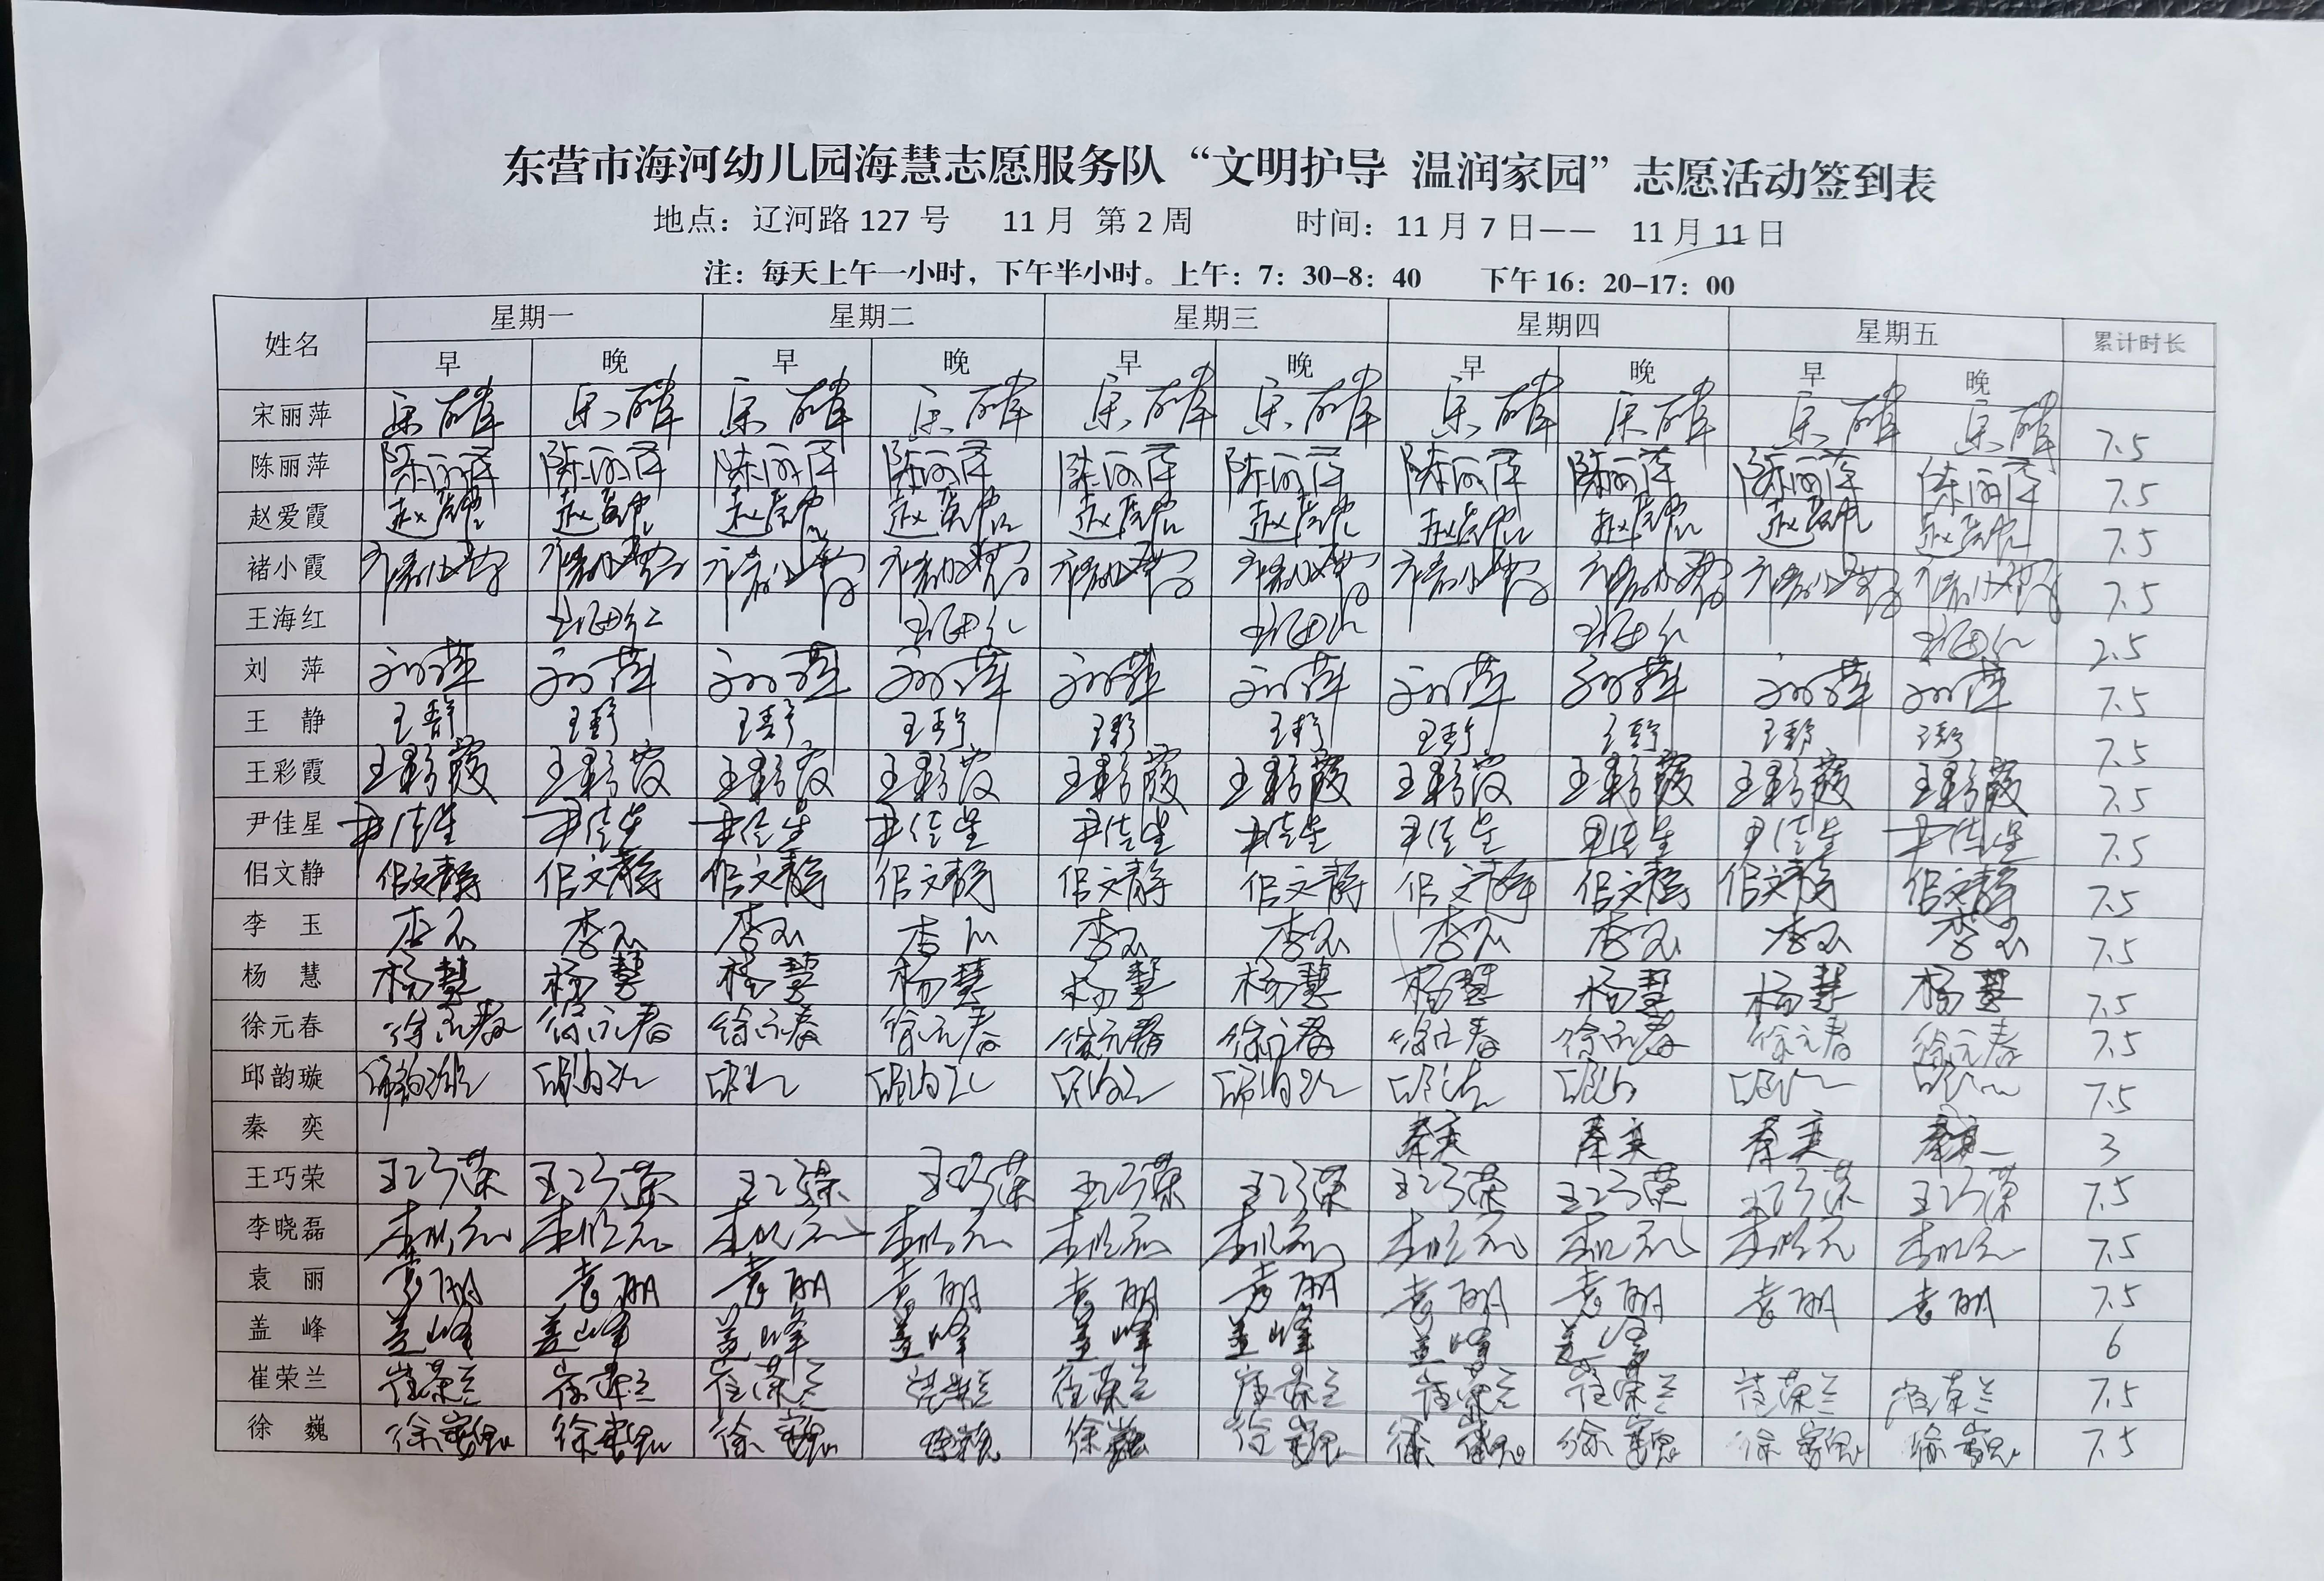 东营市海河幼儿园海慧志愿服务队“文明护导 温润家园”志愿活动签到表
地点：辽河路 127 号 11 月 第 2 周 时间：11 月 7 日—— 11 月 11 日
注：每天上午一小时，下午半小时。上午：7：30-8：40 下午 16：20-17：00
姓名 星期一 星期二 星期三 星期四 星期五 累计时长
早 晚 早 晚 早 晚 早 晚 早 晚
宋丽萍 宋丽萍 宋丽萍 宋丽萍 宋丽萍 宋丽萍 宋丽萍 宋丽萍 宋丽萍 宋丽萍 宋丽萍 7.5
陈丽萍 陈丽萍 陈丽萍 陈丽萍 陈丽萍 陈丽萍 陈丽萍 陈丽萍 陈丽萍 陈丽萍 陈丽萍 7.5
赵爱霞 赵爱霞 赵爱霞 赵爱霞 赵爱霞 赵爱霞 赵爱霞 赵爱霞 赵爱霞 赵爱霞 赵爱霞 7.5
褚小霞 褚小霞 褚小霞 褚小霞 褚小霞 褚小霞 褚小霞 褚小霞 褚小霞 褚小霞 褚小霞 7.5
王海红 王海红 王海红 王海红 王海红 王海红 2.5
刘 萍 刘萍 刘萍 刘萍 刘萍 刘萍 刘萍 刘萍 刘萍 刘萍 刘萍 7.5
王 静 王静 王静 王静 王静 王静 王静 王静 王静 王静 王静 7.5
王彩霞 王彩霞 王彩霞 王彩霞 王彩霞 王彩霞 王彩霞 王彩霞 王彩霞 王彩霞 王彩霞 7.5
尹佳星 尹佳星 尹佳星 尹佳星 尹佳星 尹佳星 尹佳星 尹佳星 尹佳星 尹佳星 尹佳星 7.5
佀文静 佀文静 佀文静 佀文静 佀文静 佀文静 佀文静 佀文静 佀文静 佀文静 佀文静 7.5
李 玉 李玉 李玉 李玉 李玉 李玉 李玉 李玉 李玉 李玉 李玉 7.5
杨 慧 杨慧 杨慧 杨慧 杨慧 杨慧 杨慧 杨慧 杨慧 杨慧 杨慧 7.5
徐元春 徐元春 徐元春 徐元春 徐元春 徐元春 徐元春 徐元春 徐元春 徐元春 徐元春 7.5
邱韵璇 邱韵璇 7.5
秦 奕 秦奕 秦奕 秦奕 秦奕 3
王巧荣 王巧荣 王巧荣 王巧荣 王巧荣 王巧荣 王巧荣 王巧荣 王巧荣 王巧荣 王巧荣 7.5
李晓磊 李晓磊 李晓磊 李晓磊 李晓磊 李晓磊 李晓磊 李晓磊 李晓磊 李晓磊 李晓磊 7.5
袁 丽 袁丽 袁丽 袁丽 袁丽 袁丽 袁丽 袁丽 袁丽 袁丽 袁丽 7.5
盖 峰 盖峰 盖峰 盖峰 盖峰 盖峰 盖峰 盖峰 盖峰 6
崔荣兰 崔荣兰 崔荣兰 崔荣兰 崔荣兰 崔荣兰 崔荣兰 崔荣兰 崔荣兰 崔荣兰 崔荣兰 7.5
徐 巍 徐巍 徐巍 徐巍 徐巍 徐巍 徐巍 徐巍 徐巍 徐巍 徐巍 7.5